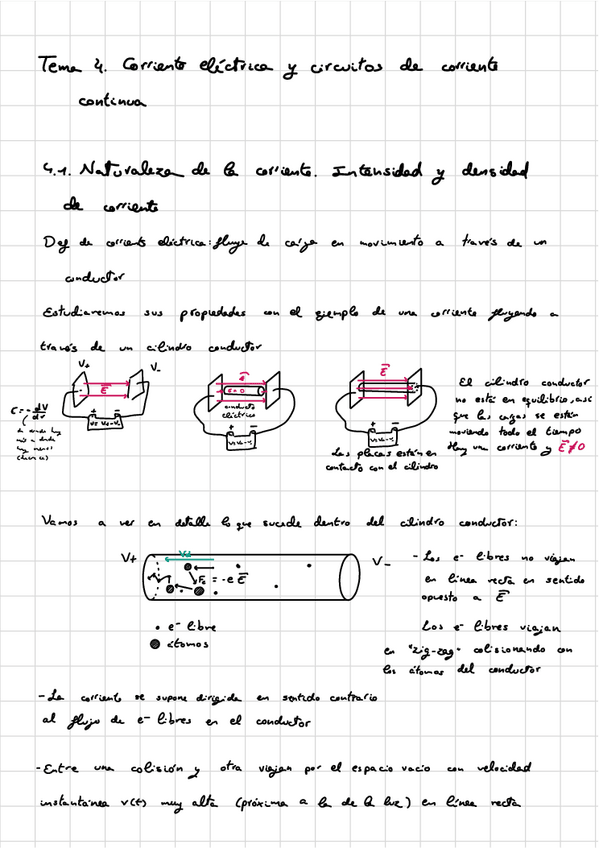 Tema 4. Corriente eléctrica y circuitos de corriente
continua
4.1. Naturaleza de la corriente. Intensidad y densidad
de corriente
Def de corriente eléctrica: flujo de carga en movimiento a través de un
conductor
Estudiaremos sus propiedades con el ejemplo de una corriente fluyendo a
través de un cilindro conductor
V+
V-
E
E = - dV/dr
+ -
E
E = 0
conducto
eléctrico
+ -
E
+ -
Las placas están en
contacto con el cilindro
El cilindro conductor
no está en equilibrio, así
que las cargas se están
moviendo todo el tiempo
Hay una corriente y E≠0
Vamos a ver en detalle lo que sucede dentro del cilindro conductor:
V+
Vd
V-
Fe = -e E
• e- libre
átomos
- Los e- libres no viajan
en línea recta en sentido
opuesto a E
Los e- libres viajan
en "zig-zag" colisionando con
los átomos del conductor
- La corriente se supone dirigida en sentido contrario
al flujo de e- libres en el conductor
- Entre una colisión y otra viajan por el espacio vacío con velocidad
instantánea v(t) muy alta (próxima a la de la luz) en línea recta